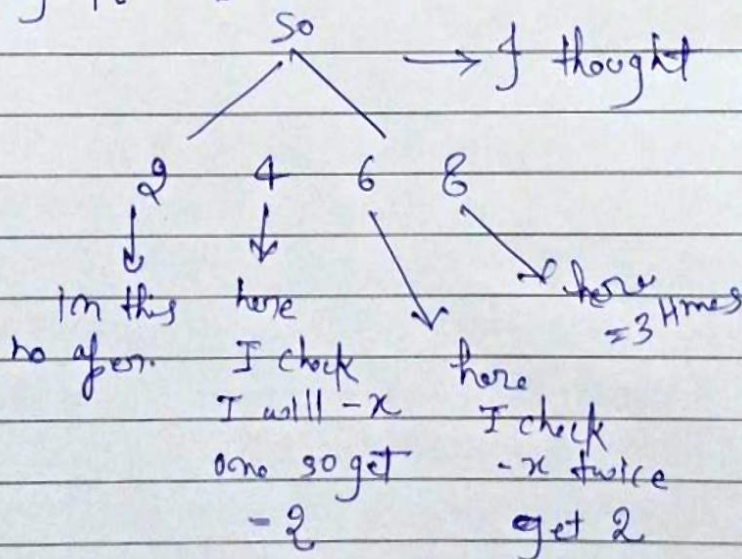 So
→ I thought
2 4 6 8
In this
no oper.
here
I check
I will -x
one so get
- 2
here
I check
-x twice
get 2
here
=3 times